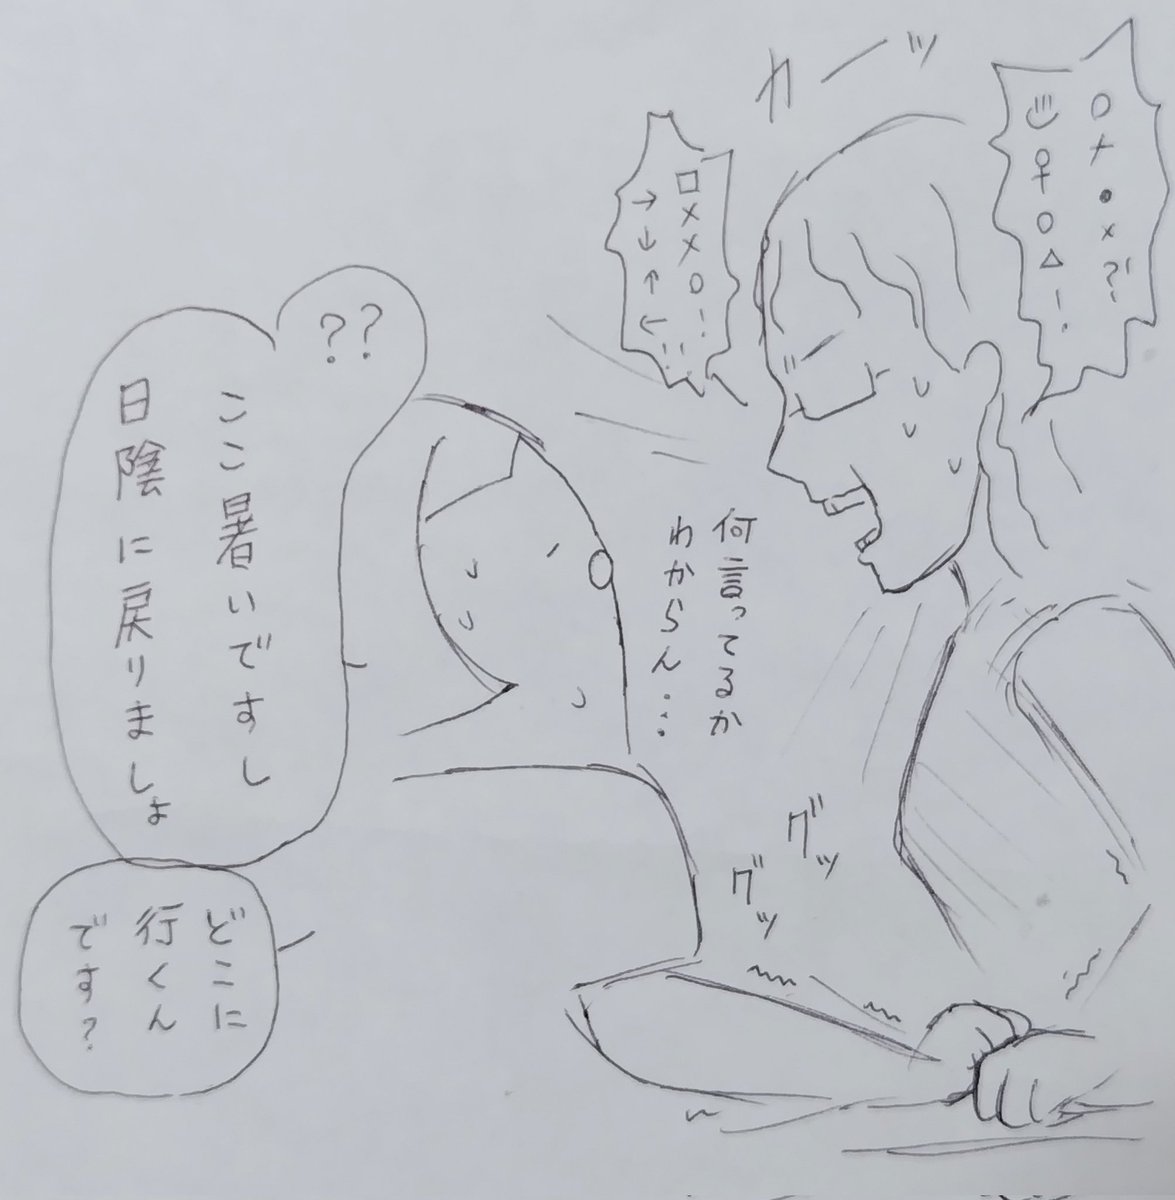 ○×●×?!
♨♀○△!
カーッ
□××○!
→↓↑←!!
何言ってるか
わからん…
??
ここ暑いですし
日陰に戻りましょ
グッ
グッ
どこに
行くん
です?